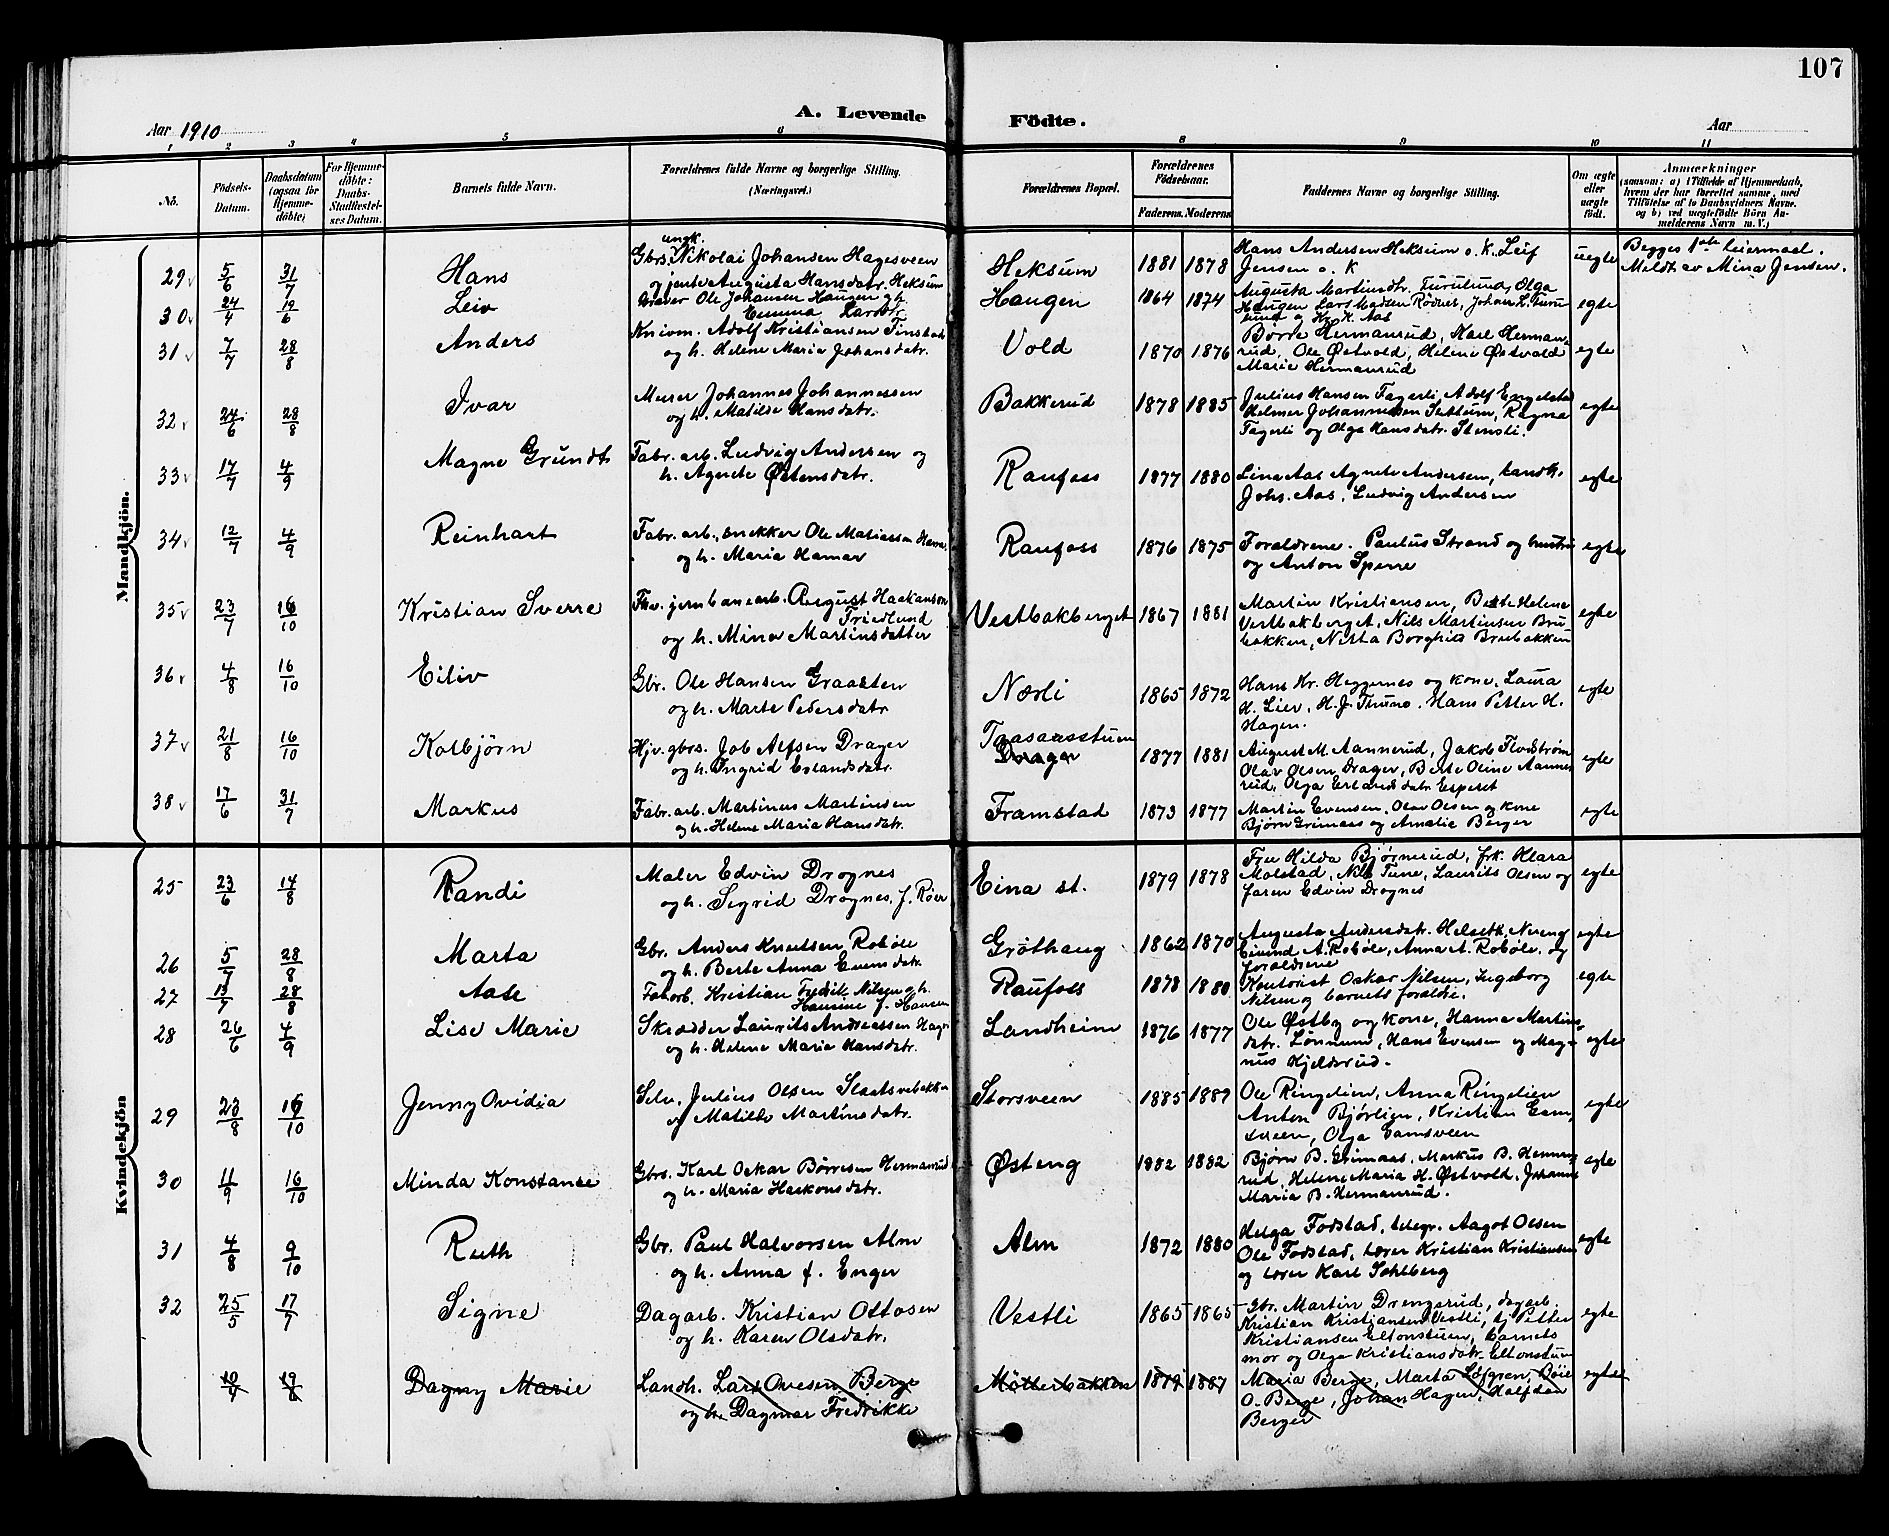 107
A. Levende Födte.
Aar 1910
Aar
1 2 3 4 5 6 8 9 10 11
No.
Födsels-Datum.
Daabsdatum (ogsaa for Hjemmedöbte)
For Hjemmedöbte: Daabs-Stadfæstelses Datum.
Barnets fulde Navn.
Forældrenes fulde Navne og borgerlige Stilling. (Næringsvei.)
Forældrenes Bopæl.
Forældrenes Födselsaar.
Faderens. Moderens.
Faddernes Navne og borgerlige Stilling.
Om ægte eller uægte födt.
Anmærkninger
(saasom: a) i Tilfælde af Hjemmedaab, hvem der har forrettet samme, med Tilföielse af to Daabsvidners Navne. og b) ved uægtefödte Börn Anmelderens Navn m. V.)
Mandkjön.
29 5/6 31/7 Hans
Gbrs. ungk. Nikolai Johansen Hagesveen
og jente Augusta Hansdatr. Heksum
Heksum 1881 1878
Hans Andersen Heksum o. K. Leif
Jensen o. K
uegte
Begges 1ste leiermaal.
Meldt av Mina Jensen.
30 24/4 19/6 Leiv
Graver Ole Johansen Haugen og h.
Emma Larsdtr
Haugen 1864 1874
Augusta Martinsdtr. Turulund, Olga
Haugen, Lars Madsen Rødner, Johan L. Turu
lund og Kr. K. Aas
egte
31 7/7 28/8 Anders
Knivm. Adolf Kristiansen Finstad
og h. Helene Maria Johansdatr.
Vold 1870 1876
Børre Hermanrud, Karl Herman-
rud, Ole Østvold, Helene Østvold
Marie Hermanrud
egte
32 24/6 28/8 Ivar
Murer Johannes Johannessen
og h. Matilde Hansdatr.
Bakkerud 1878 1885
Julius Hansen Fagerli, Adolf Engelsta
Helmer Johannessen Settum, Ragna
Fagerli og Olga Hansdatr. Stensli.
egte
33 17/7 4/9 Magne Grundt
Fabr. arb. Ludvig Andersen og
h. Agnete Østensdatr.
Raufoss 1877 1880
Lina Aas Agnete Andersen, handk.
Johs. Aas, Ludvig Andersen
egte
34 12/7 4/9 Reinhart
Fabr. arb., snekker Ole Matiassen Hamar
og h. Maria Hamar
Raufoss 1876 1875
Foraldrene. Paulus Strand og hustru
og Anton Sperre
egte
35 23/7 16/10 Kristian Sverre
Fhv. jernbanearb. August Haakanson
Friedlund
og h. Mina Martinsdatter
Vestbakberget 1867 1881
Martin Kristiansen, Berte Helene
Vestbakberget, Nils Martinsen Bru
bakken, Netta Borghild Brubakken
egte
36 4/8 16/10 Eiliv
Gbr. Ole Hansen Graasten
og h. Marte Pedersdatr
Nærli 1865 1872
Hans Kr. Heggernes og kone, Laura
H. Lier, H. J. Thune. Hans Petter H.
Hagen.
egte
37 21/8 16/10 Kolbjörn
Hjv. gbrs. Job Alfsen Drager
og h. Ingrid Erlandsdatr.
Taasaasstuen
Drager 1877 1881
August M. Aannerud, Jakob Flodstrøm
Olav Olsen Drager, Berte Oline Aanne
rud, Olga Erlandsdatr Esperet
egte
38 17/6 31/7 Markus
Fabr. arb. Martinus Martinsen
og h. Helene Maria Hansdatr.
Framstad 1873 1877
Martin Evensen, Olav Olsen og kone
Bjørn Grimaas og Amalie Berger
egte
Kvindekjön
25 23/6 14/8 Randi
Maler Edvin Drognes
og h. Sigrid Drognes, f. Røer
Eina st. 1879 1878
Fru Hilda Bjørnerud, frk. Klara
Molstad, Nils Tune, Laurits Olsen og
faren Edvin Drognes
egte
26 5/7 28/8 Marta
Gbr. Anders Knutsen Robøle
og h. Berte Anna Evensdatr.
Grøthaug 1862 1870
Augusta Andersdatr. Helseth, Nereng
Eivind A. Robøle, Anna A. Robøle, og
foraldrene
egte
27 13/7 28/8 Aase
Fabarb. Kristian Fredrik Nilsen og h.
Hansine f. Hansen
Raufoss 1878 1880
Kontorist Oskar Nilsen, Ingeborg
Nilsen og barnets foraldre.
egte
28 26/6 4/9 Lise Marie
Skrædder Laurits Andreassen Hagen
og h. Helene Marie Hansdatr.
Landheim 1876 1877
Ole Østby og kone, Hanna Martins-
datr. Lønnum, Hans Evensen og Mag-
nus Hjeldsrud.
egte
29 23/8 16/10 Jenny Ovidia
Selv. Julius Olsen Slaatsvebakken
og Matilde Martinsdatr.
Storsveen 1885 1889
Ole Ringelien, Anna Ringelien
Anton Bjørlien, Kristian Gams
sveen, Olga Gamsveen
egte
30 11/9 16/10 Minda Konstanse
Gbrs. Karl Oskar Børresen Hermanrud
og h. Maria Haakonsdatr.
Østeng 1882 1882
Bjørn B. Grimaas, Markus B. Herman
rud, Helene Maria H. Østvold. Johanne
Maria B. Hermanrud.
egte
31 4/8 9/10 Ruth
Gbr. Paul Halvorsen Alm
og h. Anna f. Enger
Alm 1872 1880
Helga Fodstad, telegr. Aagot Olsen
Ole Fodstad, lærer Kristian Kristiansen
og lærer Karl Sohlberg
egte
32 25/5 17/7 Signe
Dagarb. Kristian Ottosen
og h. Karen Olsdatr.
Vestli 1865 1865
Gbr. Martin Drengsrud, dagarb.
Kristian Kristiansen Vestli, hj Petter
Kristiansen Eltonstuen, barnets
mor og Olga Kristiansdatr. Eltonstuen
egte
10/4 19/6 Dagny Marie
Landh. Lars Ovesen Berge
og h. Dagmar Fredrikke
Møllerbakken 1879 1887
Maria Berge, Marta Løfgren, Bøie
O. Berge, Johan Hagen, Halfdan
Berger
egte